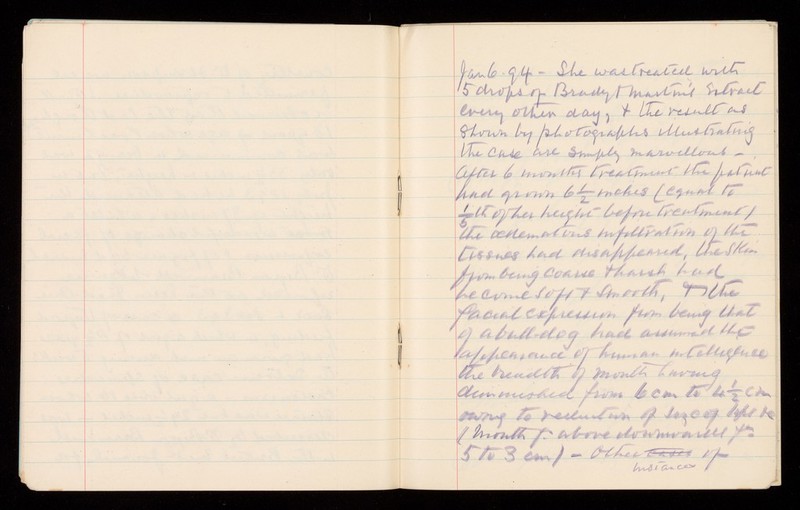 Jan 6. 94 - She was treated with
5 drops of Brady & Martin's Extract
every other day, & the result as
shown by photographs illustrating
the case are simply marvellous -
After 6 months treatment the patient
had grown 6 1/2 inches (equal to
1/6th of her height before treatment)
the oedematous infiltration of the
tissues had disappeared, the skin
from being coarse & harsh had
become soft & smooth, & the
facial expression from being that
of a bull-dog had assumed the
appearance of human intelligence
the breadth of mouth having
diminished from 6 cm to 4 1/2 cm
owing to reduction of size of lips &c
(Mouth fr above downwards fm
5 to 3 cm) - Other cases of
instances